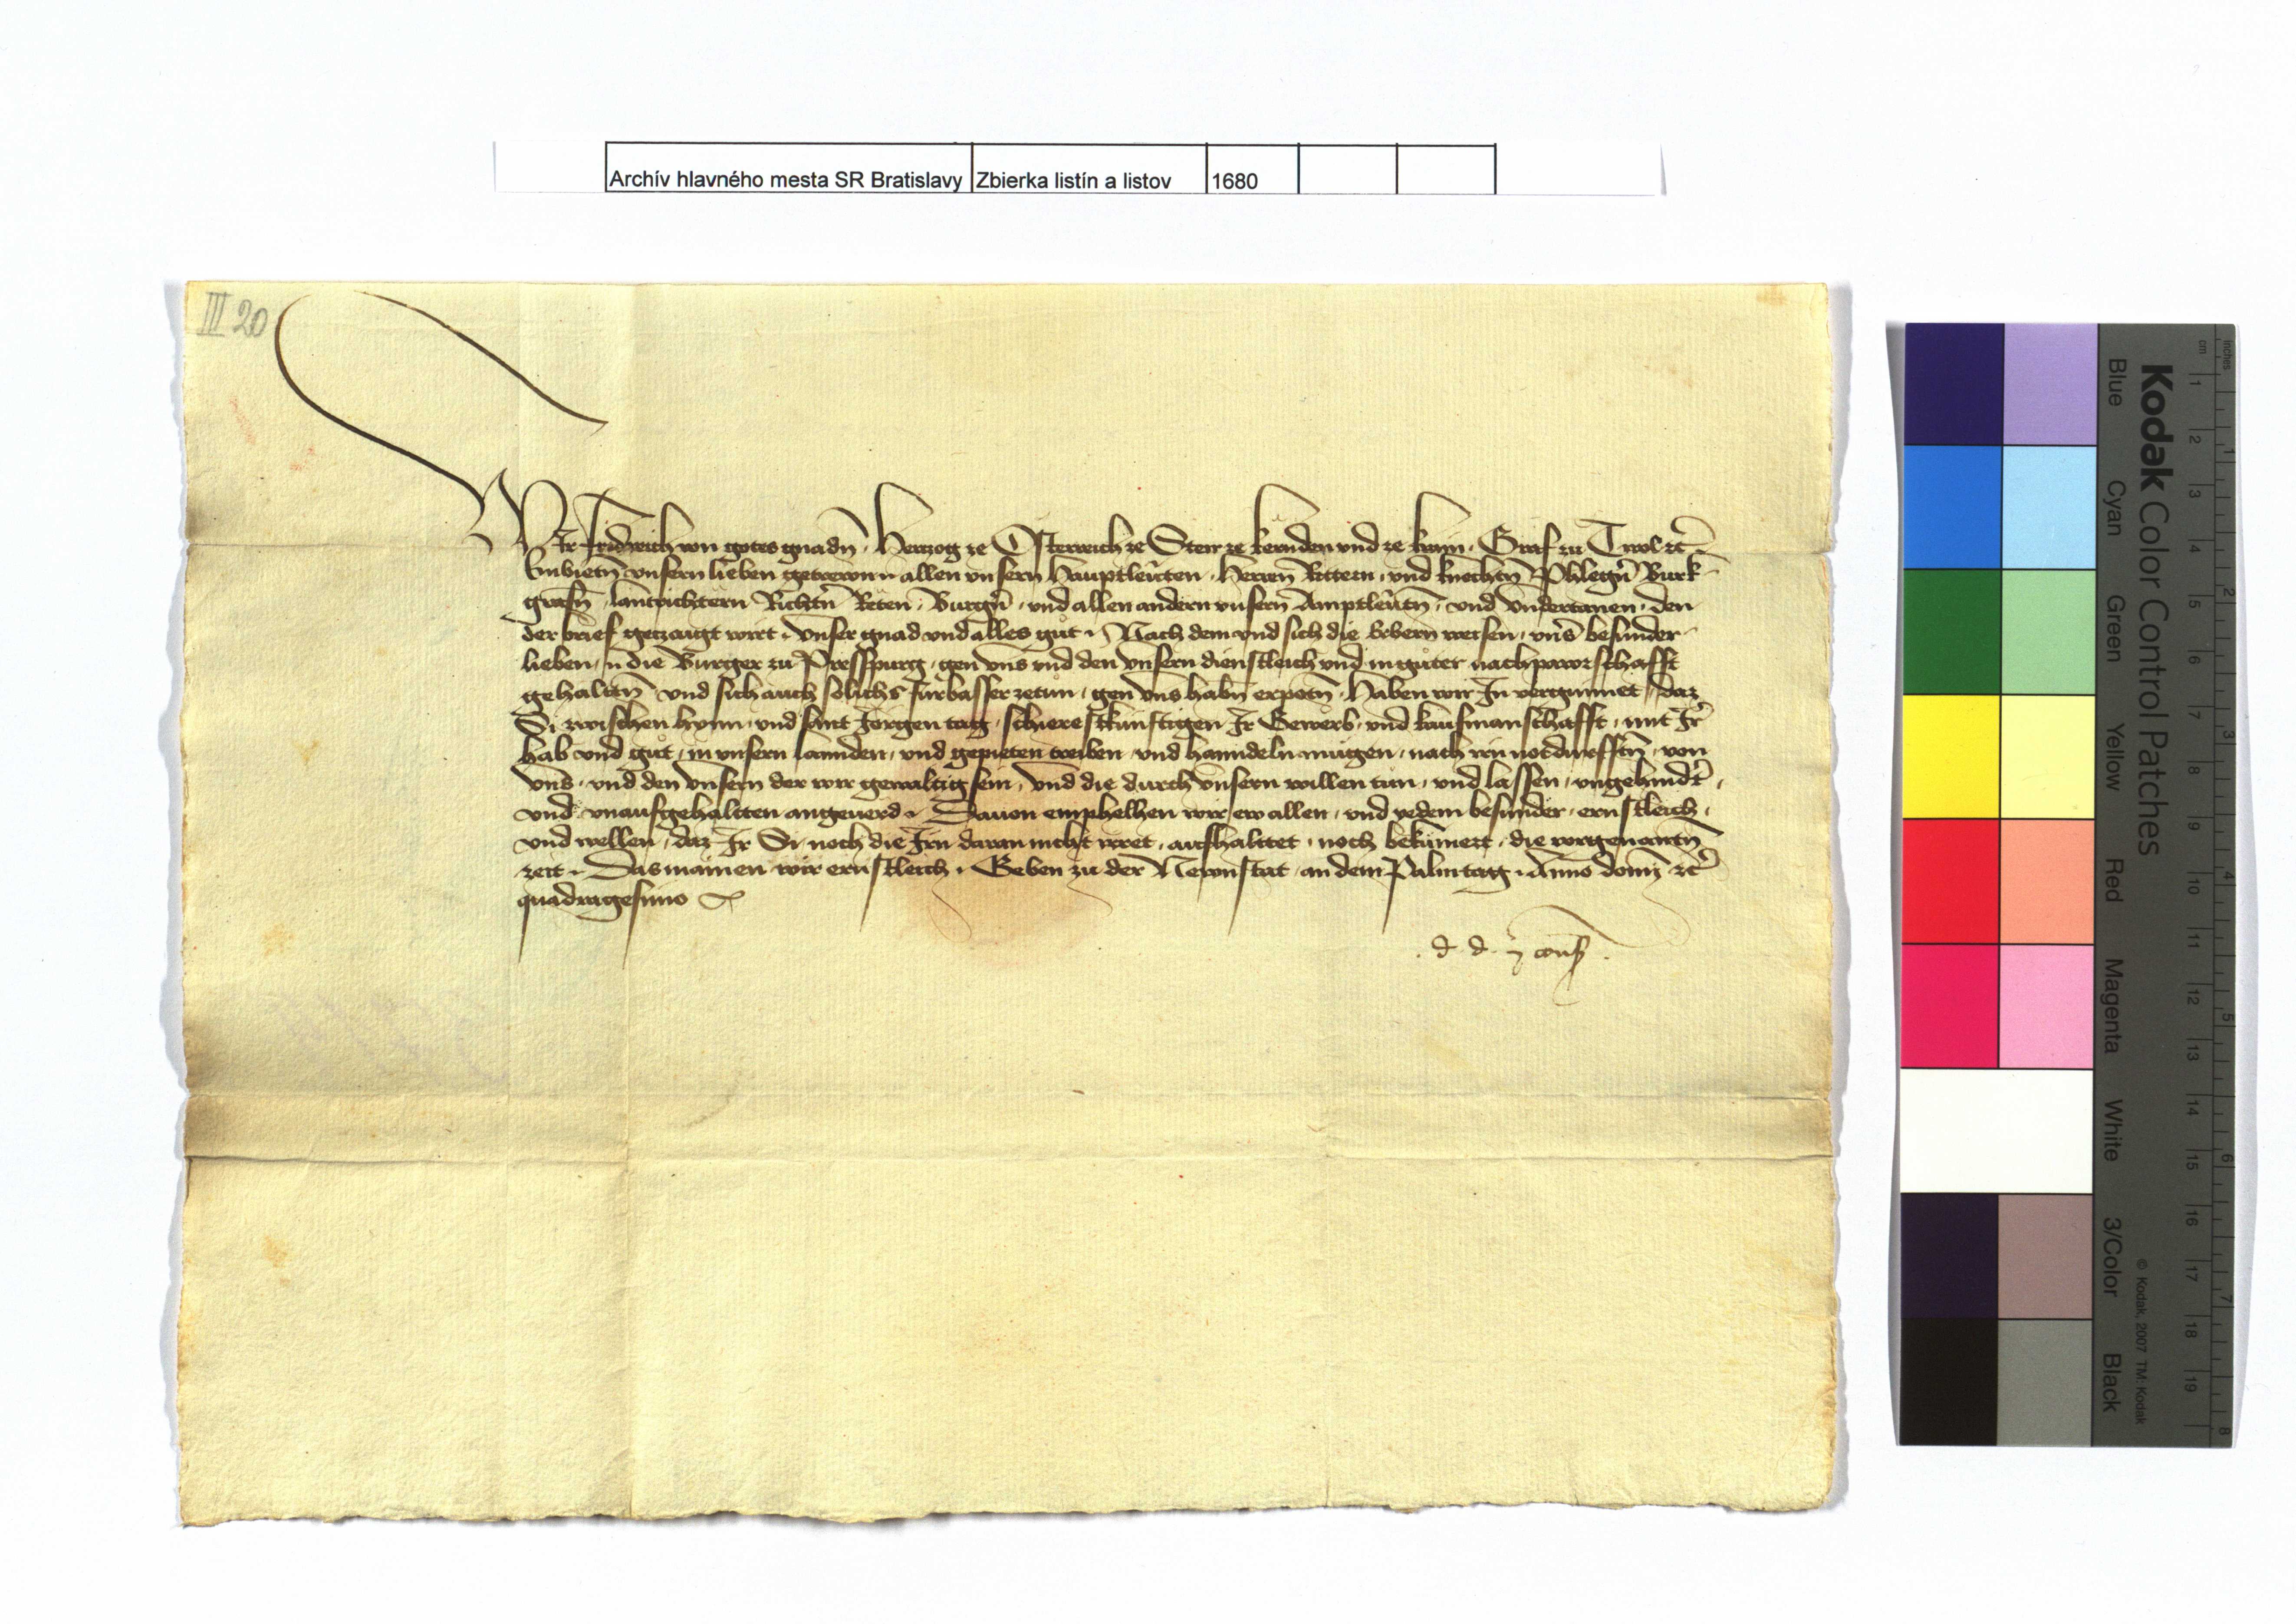 Archív hlavného mesta SR Bratislavy Zbierka listín a listov 1680
III 20
Wir Fridreich von gotes gnadñ. Herczog ze Österreich ze Steir ze kernden vnd ze krain. Graf zu Tirol ꝛc̃
Embietñ vnsern lieben getrewn n allen vnsern Hauptleuten. Herren Rittern. vnd knechtñ Phlegñ Burk-
grafñ lantrichtern Richtñ Reten. Burgñ. vnd allen andern vnsern Amptleutn. vnd vndertanen. den
der brief geczaigt wirt. vnser gnad vnd alles gut. Nach dem vnd sich die erbern weisen. vns̃ besunder
lieben. n die Burger zu Presspurg. gen vns vnd den vnsern dienstleich vnd in guter nachpawrschafft
gehaltñ vnd sich auch solichs fürbasser zetun. gen vns habñ erpotñ. Haben wir In vergunnet. daz
Si zwischen hynn. vnd sant Jorgen tag. schierestkünftigen Ir Gewerb. vnd kaufmanschafft. mit Ir̃
hab vnd gut. in vnsern lannden. vnd gepieten treiben vnd hanndeln mügen. nach irn notdurfftñ. von
vns. vnd den vnsern der wir gewaltig sein. vnd die durch vnsern willen tun. vnd lassen. vngehindr̃t.
vnd vnaufgehaltten angeuerd. Dauon emphelhen wir ew allen. vnd yedem besunder. ernstleich.
vnd wellen. daz Ir Si noch die Irn daran nicht irret. aufhalttet. noch bekümert. die vorgenantñ
zeit. Das mainen wir ernstleich. Geben zu der Newnstat an dem Palmtag. Anno domĩ ꝛc̃
quadragesimo
. d. d. in cons̃.
Kodak Color Control Patches
Blue Cyan Green Yellow Red Magenta White 3/Color Black
© Kodak, 2007 TM: Kodak
cm 1 2 3 4 5 6 7 8 9 10 11 12 13 14 15 16 17 18 19
inches 1 2 3 4 5 6 7 8